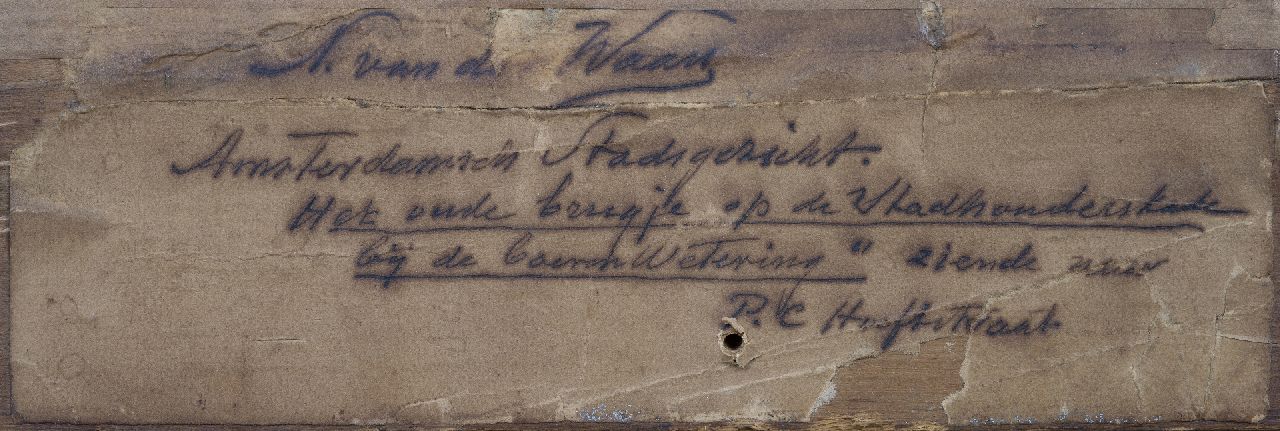 N. van der Waay
Amsterdamsch Stadsgezicht.
Het oude brugje op de Stadhouderskade
bij de boerenWetering" ziende naar
P.C Hooftstraat